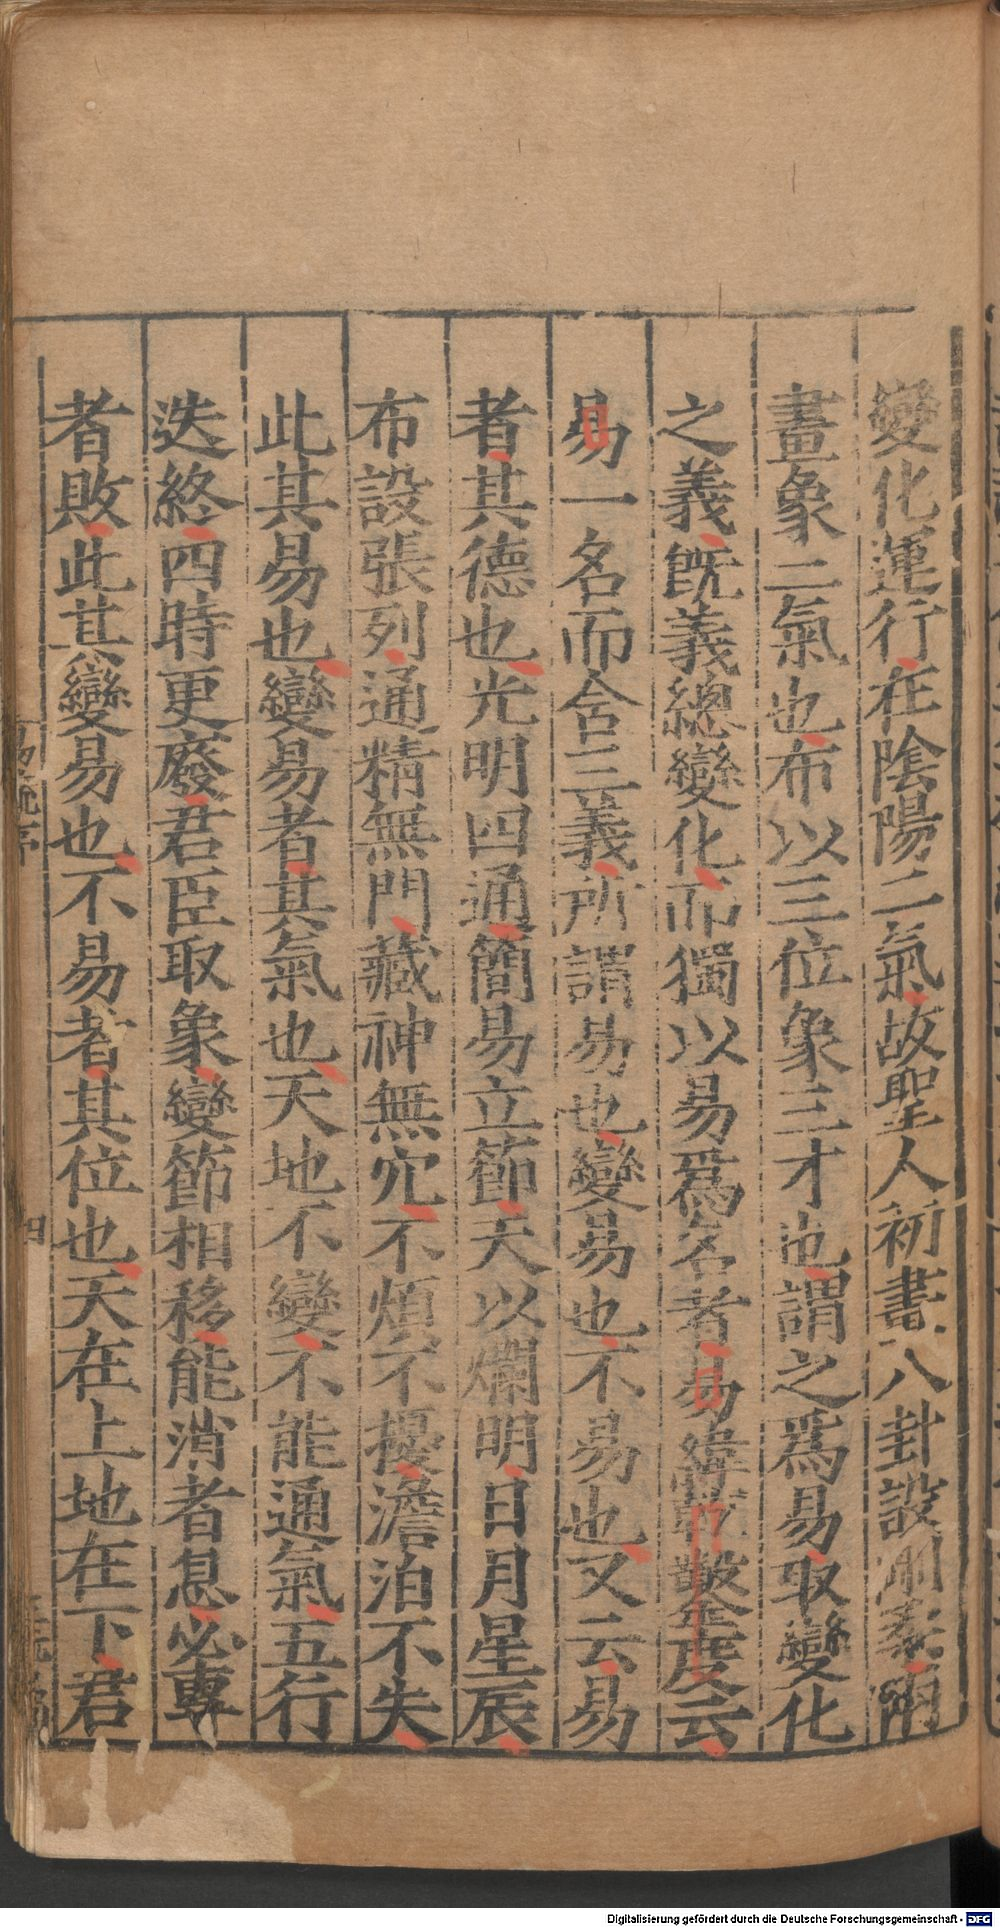 變化運行在陰陽二氣故聖人初畫八卦設剛柔兩
畫象二氣也布以三位象三才也謂之爲易取變化
之義旣義總變化而獨以易爲名者易緯乾鑿度云
易一名而含三義所謂易也變易也不易也又云易
者其德也光明四通簡易立節天以爛明日月星辰
布設張列通精無門藏神無穴不煩不擾澹泊不失
此其易也變易者其氣也天地不變不能通氣五行
迭終四時更廢君臣取象變節相移能消者息必專
者敗此其變易也不易者其位也天在上地在下君
四
Digitalisierung gefördert durch die Deutsche Forschungsgemeinschaft - DFG